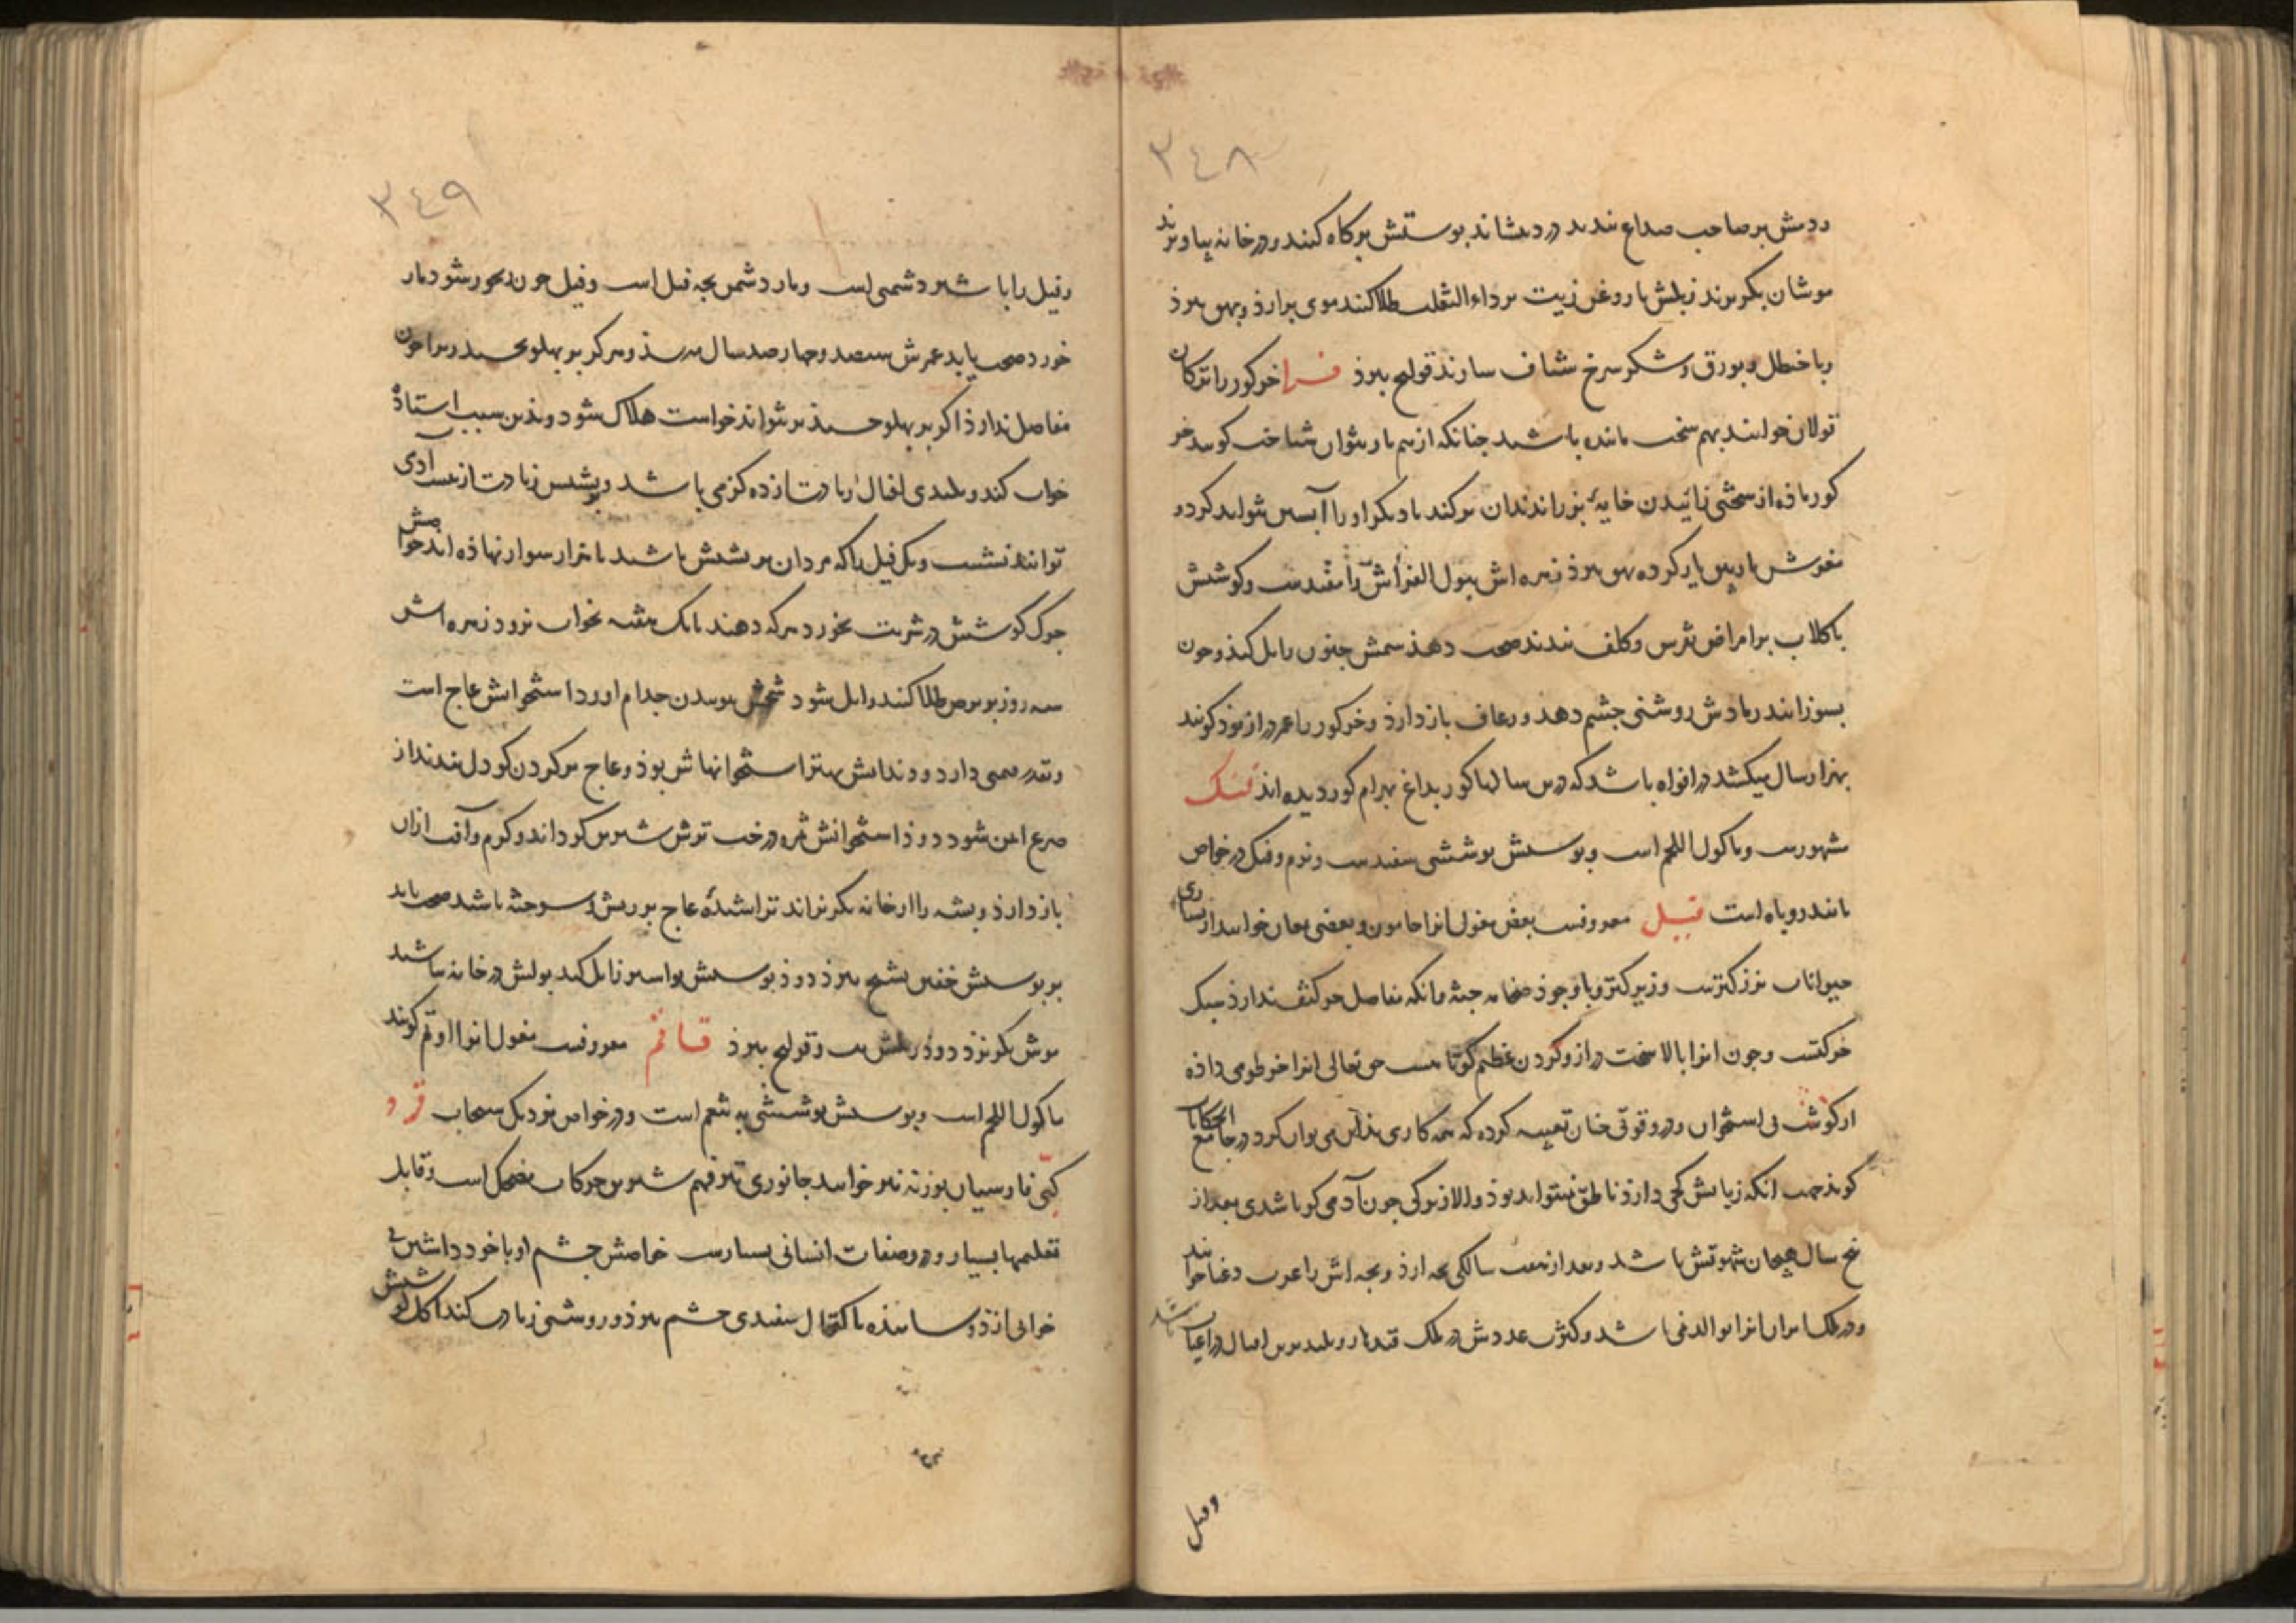 ٣٤٨
ردمش بر صاحب صداع بندند درد بنشاند پوستش پر کاه کنند و در خانه بیاویزند
موشان بگریزند زبلش با روغن زیت بر داء الثعلب طلا کنند موی برارد و بهق ببرد
و با حنظل و بورق و شکر سرخ شیاف سازند قولنج ببرد فرا خر گور را ترکان
قولان خوانند بهم سخت مانند باشند چنانکه از هم باز نتوان شناخت گویند خر
کور ماده از سختی زائیدن خایهٔ نر را بدندان بر کند تا دیگر او را آبستن نتواند کرد و
مغزش با بهق ببرد زهره اش بول الفراش را مفیدست و گوشش
با گلاب بر امراض نقرس و کلف بندند صحت دهد سمش جنون زایل کند و چون
بسوزانند رمادش روشنی چشم دهد و رعاف باز دارد و خر گور را عمر دراز بود گویند
بهزار سال میکشد در افواه باشد که درین سالها گور بداغ بهرام گور دیده اند فنک
مشهورست و ماکول اللحم است و پوستش پوششی سفیدست و نرم و فنک در خواص
مانند روباه است فیل معروفست بعض مغول انرا حامون و بعضی یعان خوانند از بسیاری
حیوانات نرز کترست و زیرکتر و با وجود ضخامه جثه و انکه مفاصل حرکتف ندارد سبک
حرکتست و چون انرا بالا سخت دراز و گردن عظیم کوتاهست حق تعالی انرا خرطومی داده
از گوشت بی استخوان و درو قوتی چنان تعبیه کرده که همه کاری بذان می توان کرد در جامع الحکایات
گوید جهت انکه زبانش کجی دارد ناطق نمیتواند بود والا از نیرکی چون آدمی گویا شدی بعد از
پنج سال هیجان شهوتش باشد و بعد از هفت سالگی بچه ارد و بچه اش را عرب دغفل خوانند
و در ملک ایران انرا توالد نمی باشد و کثرت عددش در ملک قندهار و بلندترین افیال در اغباب باشد
وفیل
٣٤٩
و فیل را با شیر دشمنی است و مار دشمن بچه فیل است و فیل چون رنجور شود مار
خورد صحت یابد عمرش سیصد و چهارصد سال برسد و هرگز بر پهلو نخسبد زیرا چون
مفاصل ندارد اگر بر پهلو خسبد بر نتواند خواست هلاک شود و بذین سبب استاده
خواب کند و بلندی افیال زیادت از ده گز می باشد و بر پشتش زیادت از بیست آدمی
توانند نشست و یک فیل را که مردان بر پشتش باشند با هزار سوار نهاده اند خواصش
چرک گوشش در شربت بخورد هر که دهند تا یک هفته بخواب نرود زهره اش
سه روز بر برص طلا کنند زایل شود شحمش بوییدن جذام اورد استخوانش عاج است
و قدر قیمتی دارد و دندانش بهتر استخوانهاش بوذ و عاج بر گردن کودک بندند از
صرع ایمن شود دود استخوانش ثمره درخت ترش شیرین گرداند و کرم و آفت ازان
باز دارد و پشه را از خانه بگریزاند تراشیدهٔ عاج بر ریش و سوخته باشد صحت یابد
بر پوستش خفتن تشنج ببرد دود پوستش بواسیر زایل کند بولش در خانه باشد
موش بگریزد دود زبلش تب و قولنج ببرد قاقم معروفست مغول انرا اوقم گویند
ماکول اللحم است و پوستش پوششی به نعم است و در خواص نزدیک سنجاب قرد
کپی فارسیان بوزنه نیز خوانند جانوری تیز فهم شیرین حرکات مضحک است و قابل
تعلیمها بسیار و در وصفات انسانی بسیارست خواصش چشم او با خود داشتن بی
خوابی ارذ و ساییده با اکتحال سفیدی چشم ببرد و روشنی زیادت کند اکل گوشتش